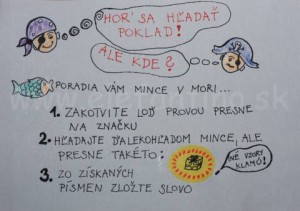 HOR' SA HĽADAŤ
POKLAD!
ALE KDE?
PORADIA VÁM MINCE V MORI...
1. ZAKOTVITE LOĎ PROVOU PRESNE
NA ZNAČKU
2. HĽADAJTE ĎALEKOHĽADOM MINCE, ALE
PRESNE TAKÉTO:
INÉ VZORY
KLAMÚ!
3. ZO ZÍSKANÝCH
PÍSMEN ZLOŽTE SLOVO